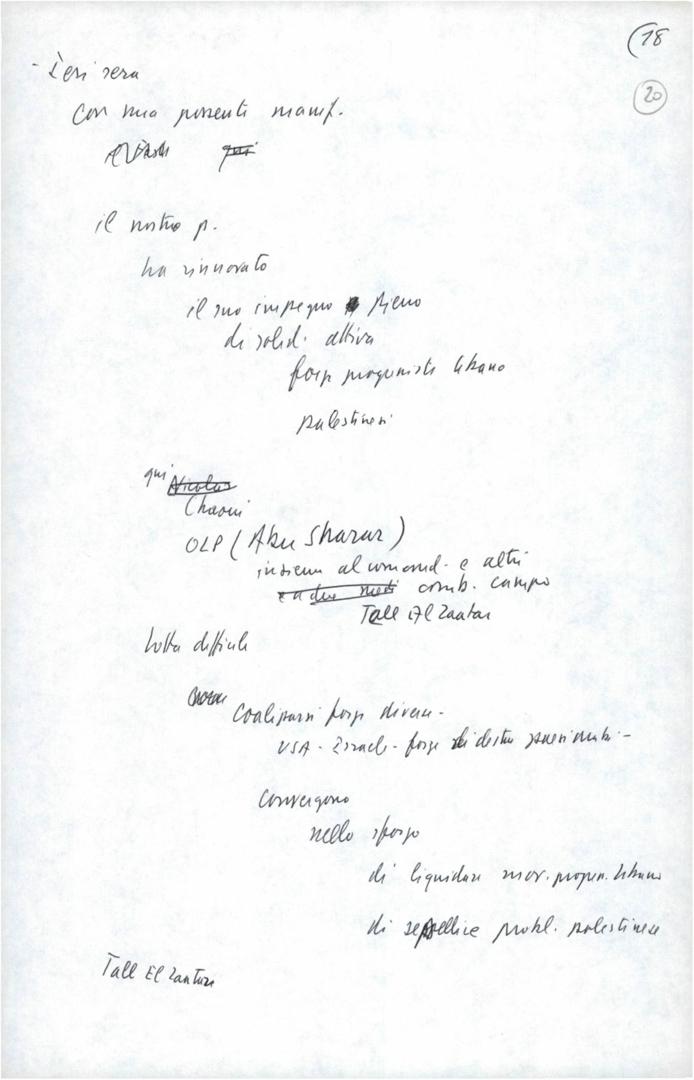 (18
20
- Ieri sera
con una possente manif.
qui
il nostro p.
ha rinnovato
il suo impegno pieno
di solid. attiva
forze progressiste libano
palestinesi
qui Nicolas
Chaoui
OLP (Abu Sharar)
insieme al comand. e altri
due medi comb. campo
Tall El Zaatar
lotta difficile
Coalizzarsi forze diverse -
USA - Israele - forze di destra
convergono
nello sforzo
di liquidare mov. progres. libano
di seppellire probl. palestinese
Tall El Zaatar